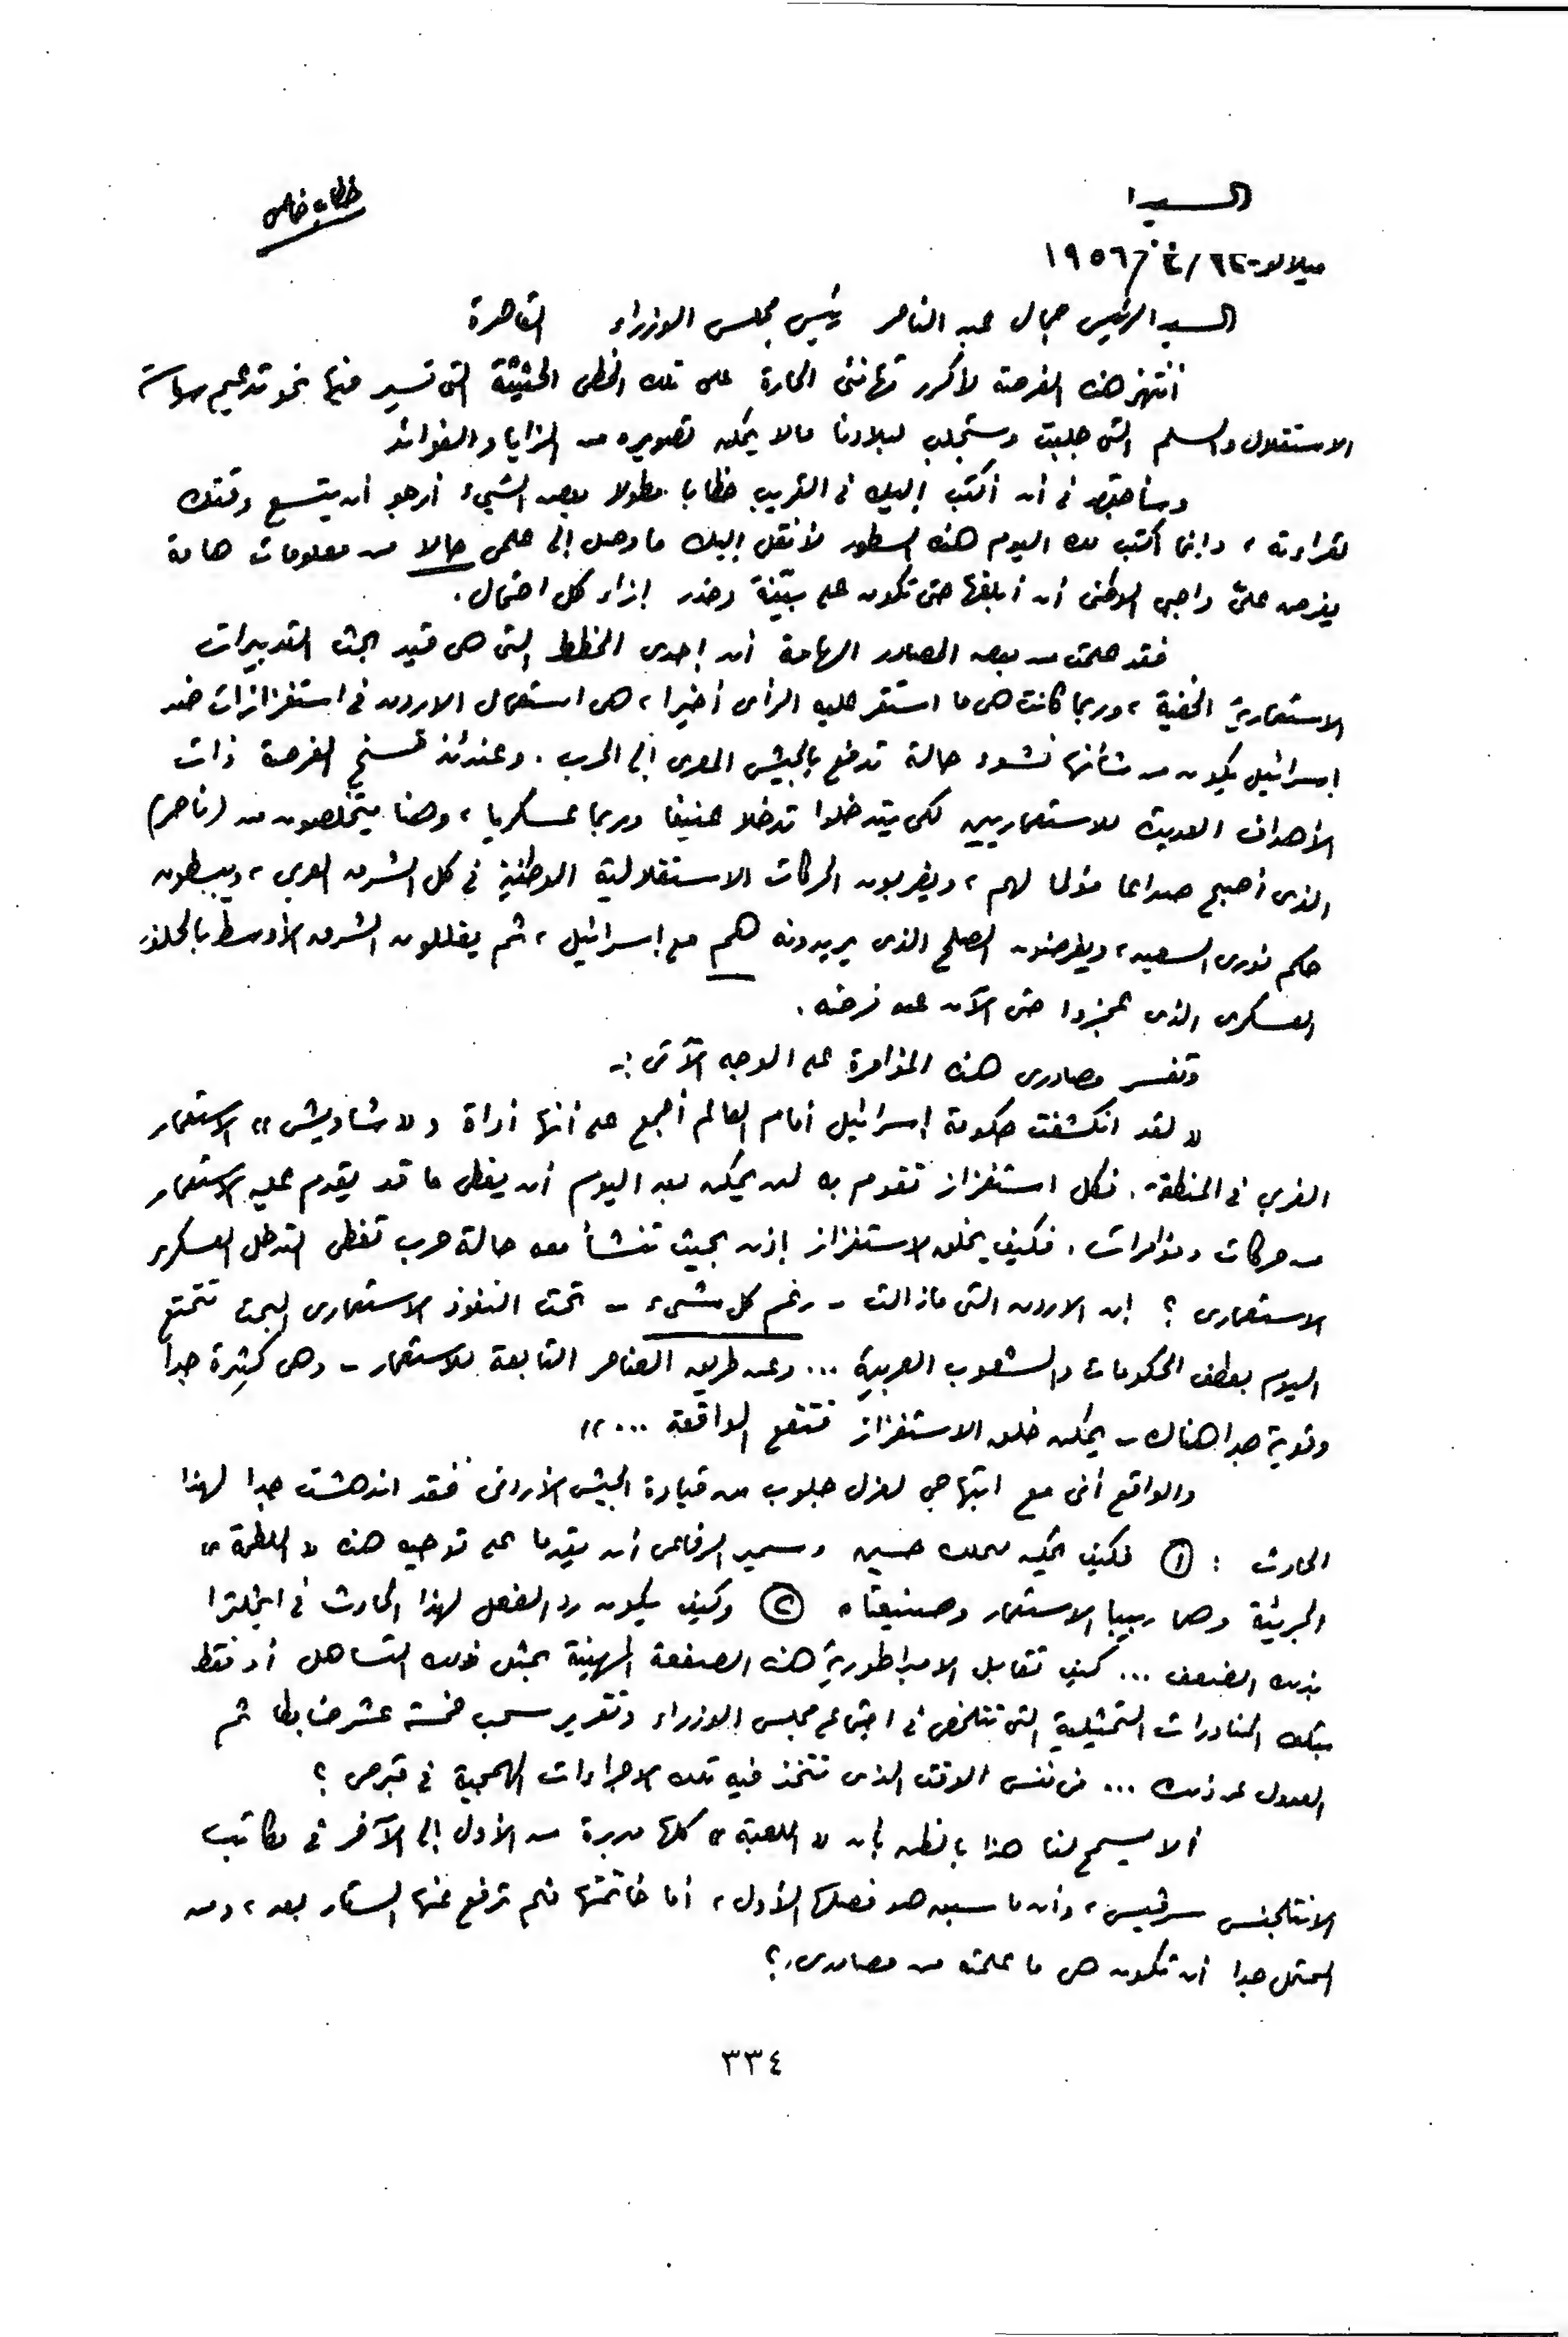 خطاب خاص
السيد ا
ميلانو - ١٩٥٦/٤/
السيد الرئيس جمال عبد الناصر رئيس مجلس الوزراء القاهرة
أنتهز هذه الفرصة لأكرر تهانئى الحارة على تلك الخطى الحثيثة التى تسير فيها نحو تدعيم سياسة
الاستقلال والسلم التى جلبت وستجلب لبلادنا مالا يمكن تصويره من المزايا والفوائد
فى أن أكتب إليك فى القريب خطابا مطولا بعض الشىء أرجو أن يتسع وقتك
لقراءته ، وإنما أكتب لك اليوم هذه السطور لأنقل إليك ما وصل إلى علمى حالا من معلومات هامة
يفرض علىّ واجبى الوطنى أن أبلغها حتى تكون على بيّنة وحذر إزاء كل احتمال .
فقد علمت من بعض المصادر الهامة أن إحدى الخطط التى هى قيد بحث التدبيرات
الاستعمارية الخفية ، وربما كانت هى ما استقر عليه الرأى أخيرا ، هى استعمال الاردن فى استفزازات ضد
إسرائيل يكون من شأنها نشوء حالة تدفع بالجيش المصرى إلى الحرب . وعندئذ تسنح الفرصة ذات
الأهداف العديدة للاستعماريين لكى يتدخلوا تدخلا عنيفا وربما عسكريا ، وهنا يتخلصون من (ناصر)
الذى أصبح صداعا مؤلما لهم ، ويضربون الحركات الاستقلالية الوطنية فى كل الشرق العربى ، ويبسطون
حكم نورى السعيد ، ويفرضون الصلح الذى يريدونه هم مع إسرائيل ، ثم يغللون الشرق الأوسط بالحلف
العسكرى الذى عجزوا حتى الآن عن فرضه .
وتفسر مصادرى هذه المؤامرة على الوجه الآتى :-
« لقد انكشفت حكومة إسرائيل أمام العالم أجمع على أنها أداة و « شاويش » الاستعمار
الغربى فى المنطقة . فكل استفزاز تقوم به لن يمكن بعد اليوم أن يغطى ما قد يقدم عليه الاستعمار
من حركات ومؤامرات . فكيف يخلق الاستفزاز إذن بحيث تنشأ معه حالة حرب تغطى التدخل العسكرى
الاستعمارى ؟ إن الاردن التى مازالت - رغم كل شىء - تحت النفوذ الاستعمارى البحت تتمتع
اليوم بعطف الحكومات والشعوب العربية ... وعن طريق العناصر التابعة للاستعمار - وهى كثيرة جداً
وقوية جدا هناك - يمكن خلق الاستفزاز فتقع الواقعة ... »
والواقع أنى مع ابتهاجى لعزل جلوب من قيادة الجيش الأردنى فقد اندهشت جدا لهذا
الحادث : ① فكيف يمكن للملك حسين وسمير الرفاعى أن يقدما على توجيه هذه « اللطمة »
الجريئة وهما ربيبا الاستعمار وصنيعتاه ② وكيف يكون رد الفعل لهذا الحادث فى انجلترا
بذلك الضعف ... كيف تقابل الامبراطورية هذه الصفعة المهينة بمثل ذلك التساهل أو فقط
بتلك المناورات التمثيلية التى تتلخص فى اجتماع مجلس الوزراء وتقرير سحب خمسة عشر ضابطا ثم
العدول عن ذلك ... فى نفس الوقت الذى تتخذ فيه تلك الاجراءات الهمجية فى قبرص ؟
ألا يسمح لنا هذا بالظن بأن « اللعبة » كلها مدبرة من الأول إلى الآخر فى مكاتب
الانتلجنس سرفيس ، وأن ما سبق هو فصلها الأول ، أما خاتمتها فلم ترفع عنها الستار بعد ، ومن
المحتمل جدا أن تكون هى ما علمته من مصادرى . ؟
٣٣٤